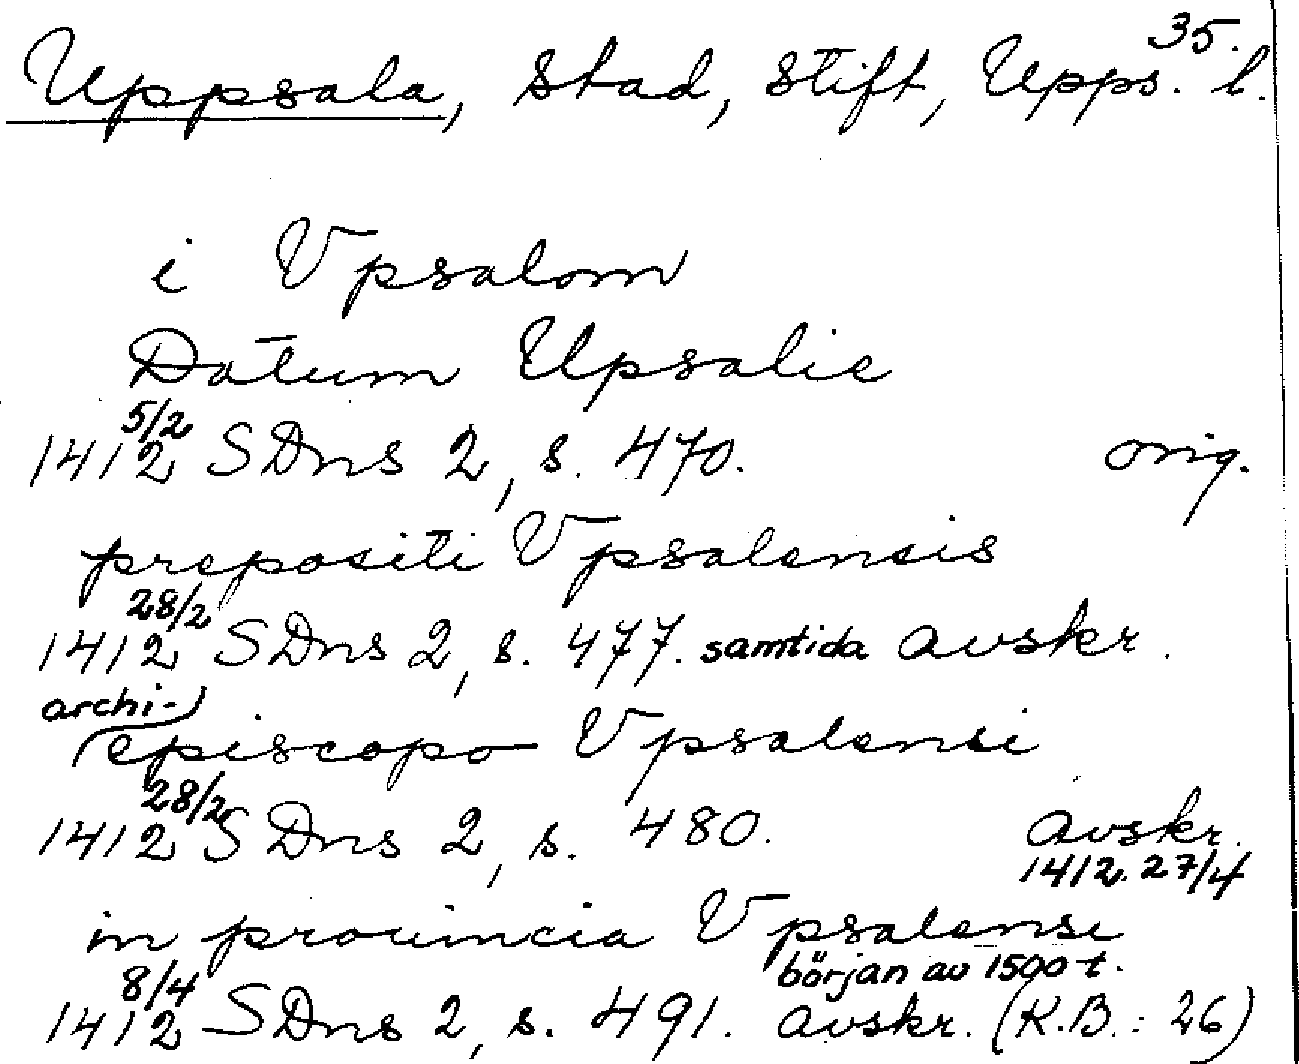 35.
Uppsala, stad, stift, Upps. l.
i Vpsalom
Datum Upsalie
5/2
1412 SDns 2, s. 470. orig.
prepositi Vpsalensis
28/2
1412 SDns 2, s. 477. samtida avskr.
archi-
episcopo Vpsalensi
28/2
1412 SDns 2, s. 480. avskr.
1412 27/4
in prouincia Vpsalensi
8/4 början av 1500-t.
1412 SDns 2, s. 491. avskr. (K.B.: 26)